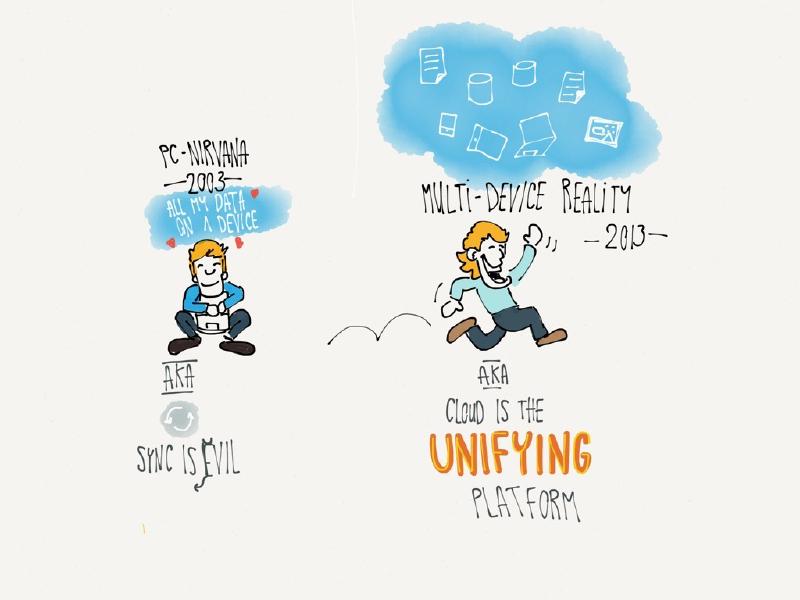 PC-NIRVANA
-2003-
ALL MY DATA
ON A DEVICE
AKA
SYNC IS EVIL
MULTI-DEVICE REALITY
-2013-
AKA
CLOUD IS THE
UNIFYING
PLATFORM